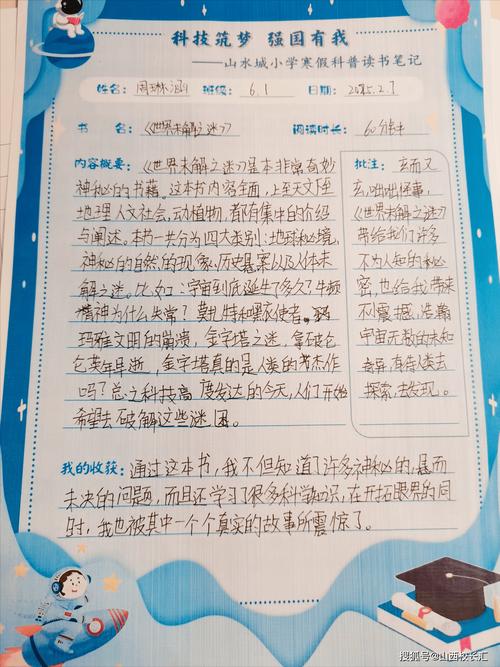 科技筑梦 强国有我
——山水城小学寒假科普读书笔记
姓名: 周琳涵 班级: 6.1 日期: 2025.2.7
书 名: 《世界未解之谜》 阅读时长: 60分钟
内容概要: 《世界未解之谜》是本非常奇妙
神秘的书籍。这本书内容全面,上至天文下至
地理人文社会,动植物,都有集中的介绍
与阐述。本书一共分为四大类别:地球秘境,
神秘的自然的现象,历史悬案以及人体未
解之谜。比如:宇宙到底诞生了多久?牛顿
精神为什么失常?莫扎特和黑衣使者。
玛雅文明的崩溃,金字塔之谜,拿破仑
英年早逝,金字塔真的是人类的杰作
吗?总之科技高度发达的今天,人们开始
希望去破解这些谜团。
批注: 玄而又
玄,咄咄怪事,
《世界未解之谜》
带给我们许多
不为人知的秘
密,也给我带来
不少震撼,浩瀚
宇宙无数的未知
奇异,有待人类去
探索,去发现。
我的收获: 通过这本书,我不但知道了许多神秘的,悬而
未决的问题,而且还学习了很多科学知识,在开拓眼界的同
时,我也被其中一个个真实的故事所震惊了。
搜狐号@山西校长汇